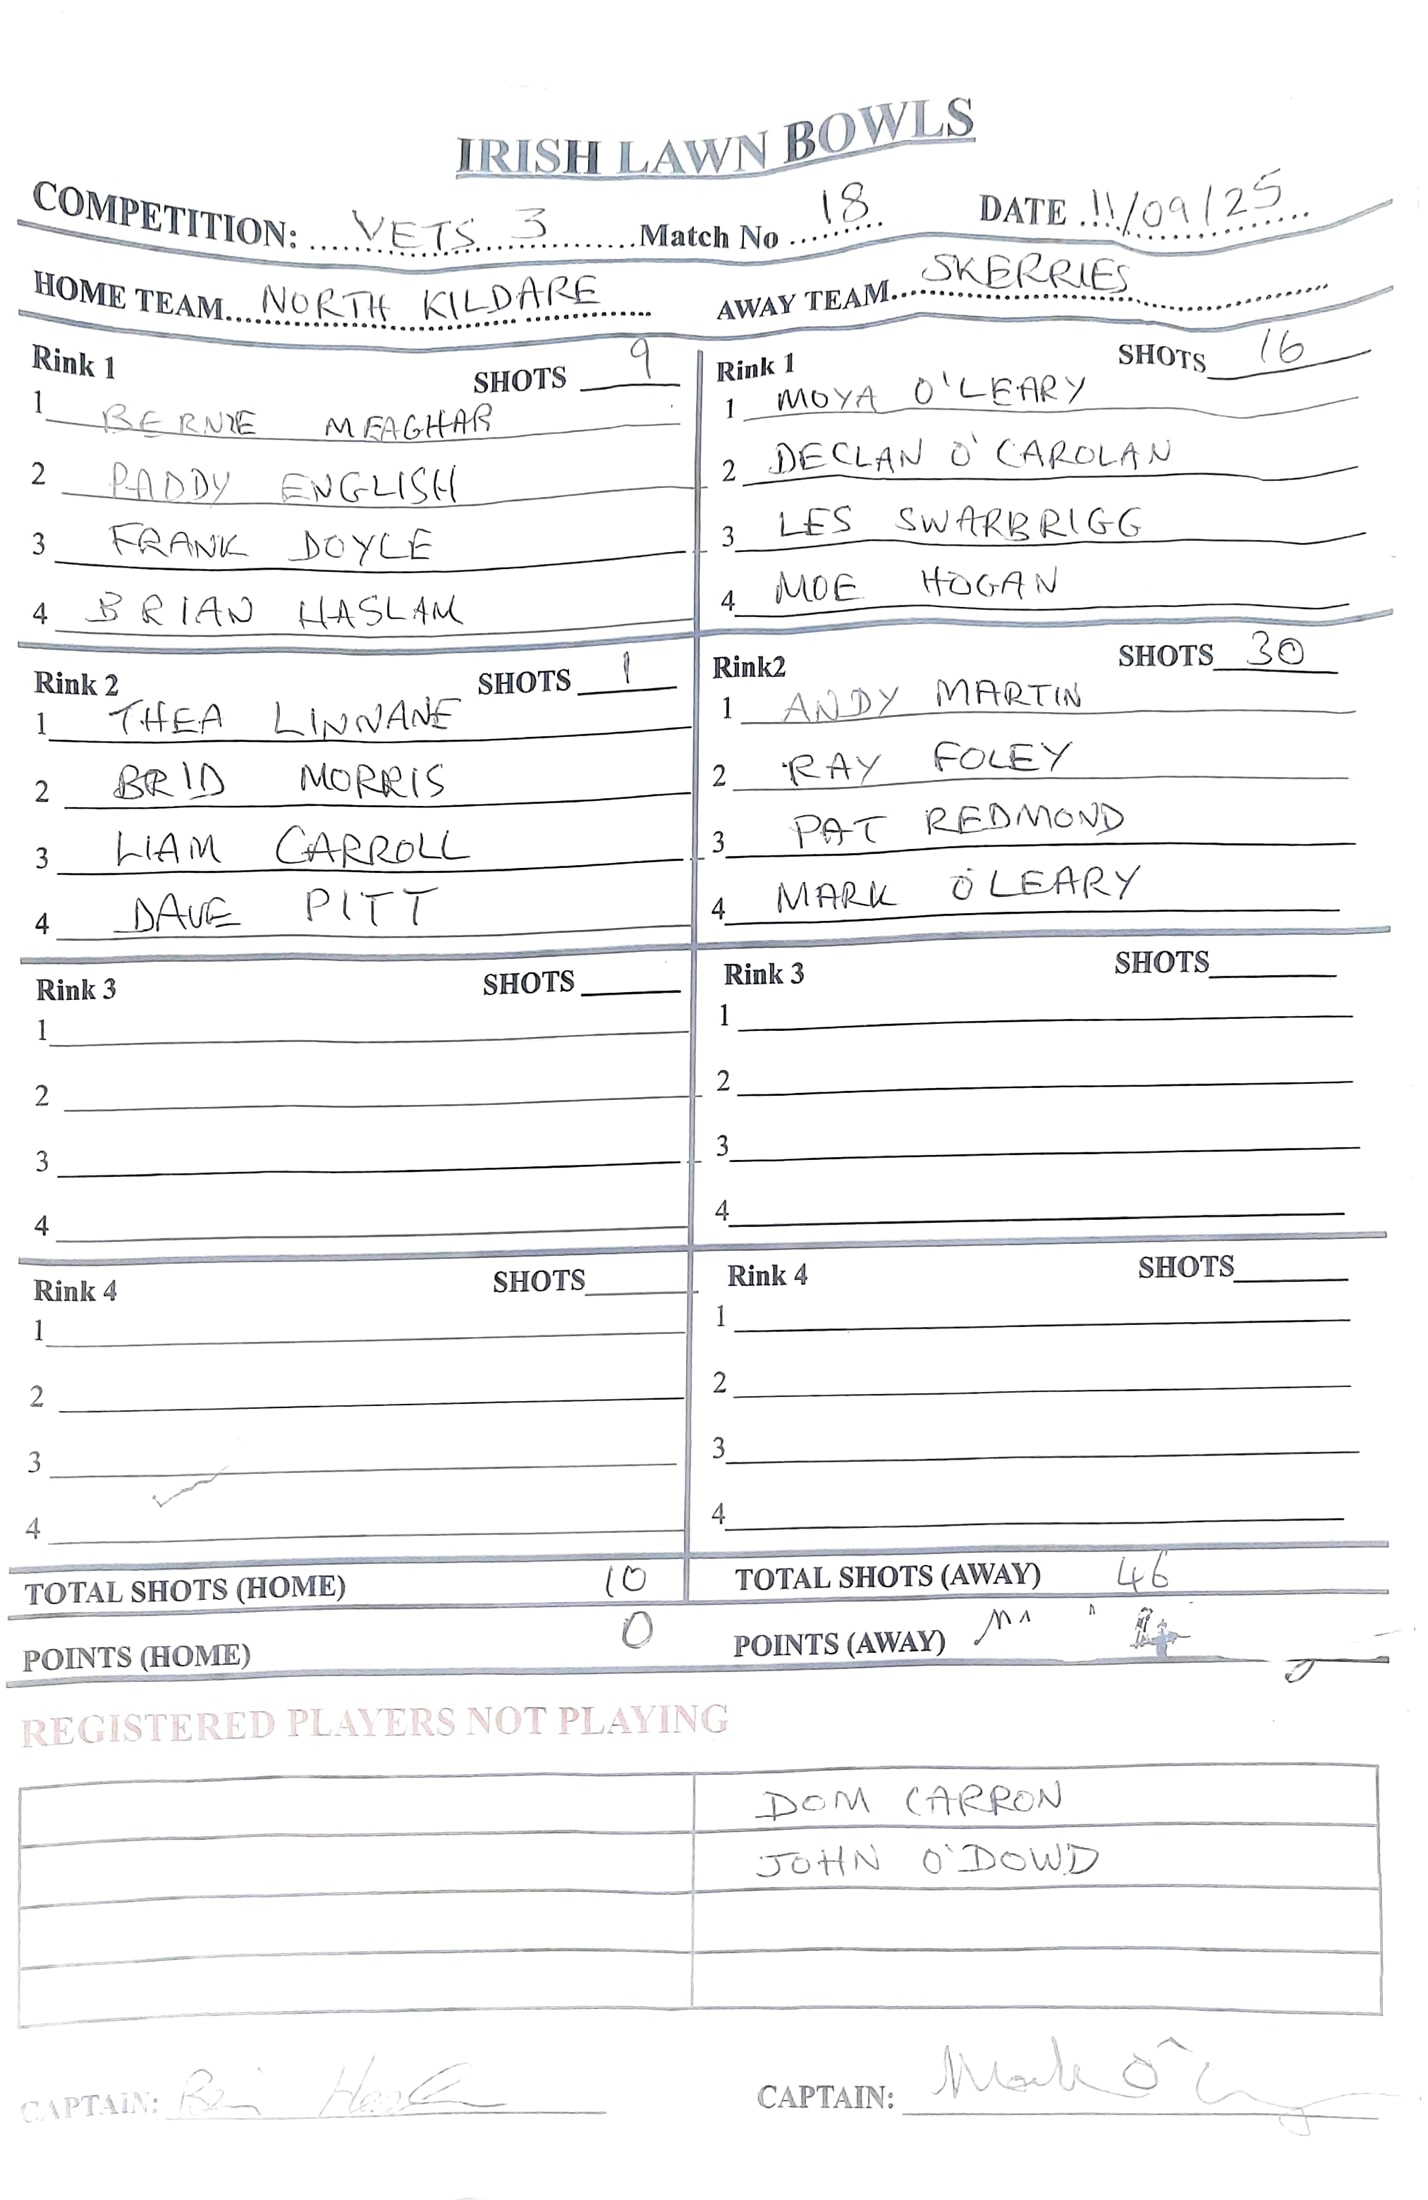 IRISH LAWN BOWLS
COMPETITION: VETS 3 Match No 18 DATE 11/09/25
HOME TEAM NORTH KILDARE AWAY TEAM SKERRIES
Rink 1 SHOTS 9
1 BERNIE MEAGHAR
2 PADDY ENGLISH
3 FRANK DOYLE
4 BRIAN HASLAM
Rink 1 SHOTS 16
1 MOYA O'LEARY
2 DECLAN O'CAROLAN
3 LES SWARBRIGG
4 MOE HOGAN
Rink 2 SHOTS 1
1 THEA LINNANE
2 BRID MORRIS
3 LIAM CARROLL
4 DAVE PITT
Rink2 SHOTS 30
1 ANDY MARTIN
2 RAY FOLEY
3 PAT REDMOND
4 MARK O'LEARY
Rink 3 SHOTS
1
2
3
4
Rink 3 SHOTS
1
2
3
4
Rink 4 SHOTS
1
2
3
4
Rink 4 SHOTS
1
2
3
4
TOTAL SHOTS (HOME) 10 TOTAL SHOTS (AWAY) 46
POINTS (HOME) 0 POINTS (AWAY)
REGISTERED PLAYERS NOT PLAYING
DOM CARRON
JOHN O'DOWD
CAPTAIN: CAPTAIN: Mark